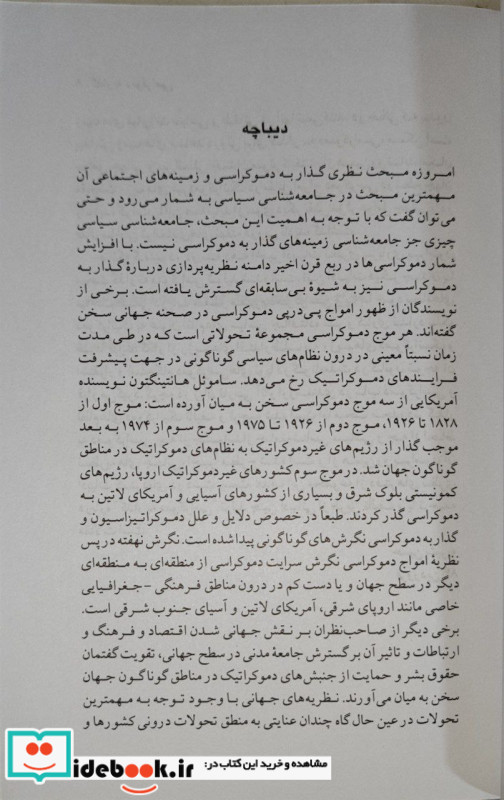 دیباچه
امروزه مبحث نظری گذار به دموکراسی و زمینه‌های اجتماعی آن
مهمترین مبحث در جامعه‌شناسی سیاسی به شمار می‌رود و حتی
می‌توان گفت که با توجه به اهمیت این مبحث، جامعه‌شناسی سیاسی
چیزی جز جامعه‌شناسی زمینه‌های گذار به دموکراسی نیست. با افزایش
شمار دموکراسی‌ها در ربع قرن اخیر دامنه نظریه‌پردازی دربارهٔ گذار به
دموکراسی نیز به شیوهٔ بی‌سابقه‌ای گسترش یافته است. برخی از
نویسندگان از ظهور امواج پی‌درپی دموکراسی در صحنه جهانی سخن
گفته‌اند. هر موج دموکراسی مجموعهٔ تحولاتی است که در طی مدت
زمان نسبتاً معینی در درون نظام‌های سیاسی گوناگونی در جهت پیشرفت
فرایندهای دموکراتیک رخ می‌دهد. ساموئل هانتینگتون نویسنده
آمریکایی از سه موج دموکراسی سخن به میان آورده است: موج اول از
۱۸۲۸ تا ۱۹۲۶، موج دوم از ۱۹۲۶ تا ۱۹۷۵ و موج سوم از ۱۹۷۴ به بعد
موجب گذار از رژیم‌های غیردموکراتیک به نظام‌های دموکراتیک در مناطق
گوناگون جهان شد. در موج سوم کشورهای غیردموکراتیک اروپا، رژیم‌های
کمونیستی بلوک شرق و بسیاری از کشورهای آسیایی و آمریکای لاتین به
دموکراسی گذر کردند. طبعاً در خصوص دلایل و علل دموکراتیزاسیون و
گذار به دموکراسی نگرش‌های گوناگونی پیدا شده است. نگرش نهفته در پس
نظریهٔ امواج دموکراسی نگرش سرایت دموکراسی از منطقه‌ای به منطقه‌ای
دیگر در سطح جهان و یا دست کم در درون مناطق فرهنگی -جغرافیایی
خاصی مانند اروپای شرقی، آمریکای لاتین و آسیای جنوب شرقی است.
برخی دیگر از صاحب‌نظران بر نقش جهانی شدن اقتصاد و فرهنگ و
ارتباطات و تاثیر آن بر گسترش جامعهٔ مدنی در سطح جهانی، تقویت گفتمان
حقوق بشر و حمایت از جنبش‌های دموکراتیک در مناطق گوناگون جهان
سخن به میان می‌آورند. نظریه‌های جهانی با وجود توجه به مهمترین
تحولات در عین حال گاه چندان عنایتی به منطق تحولات درونی کشورها و
مشاهده و خرید این کتاب در:
idebook.ir